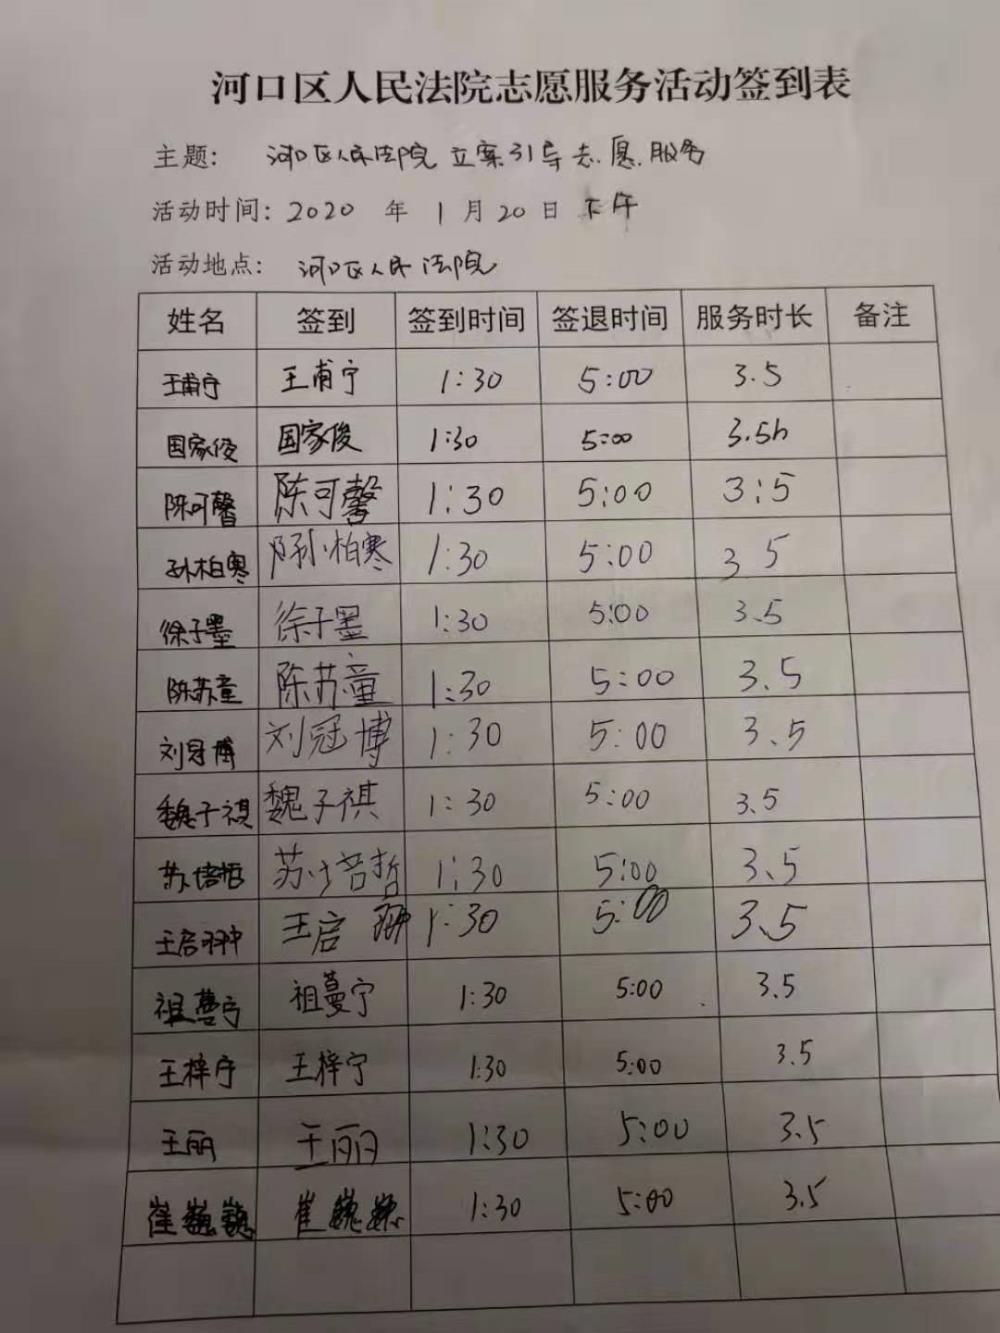 河口区人民法院志愿服务活动签到表
主题: 河口区人民法院立案引导志愿服务
活动时间: 2020 年 1 月 20 日 下午
活动地点: 河口区人民法院
姓名 签到 签到时间 签退时间 服务时长 备注
王甫宁 王甫宁 1:30 5:00 3.5
国家俊 国家俊 1:30 5:00 3.5h
陈可馨 陈可馨 1:30 5:00 3:5
孙柏寒 孙柏寒 1:30 5:00 3 5
徐子墨 徐子墨 1:30 5:00 3.5
陈苏童 陈苏童 1:30 5:00 3.5
刘冠博 刘冠博 1:30 5:00 3.5
魏子祺 魏子祺 1:30 5:00 3.5
苏培哲 苏培哲 1:30 5:00 3.5
王启翀 王启 1:30 5:00 3.5
祖蔓宁 祖蔓宁 1:30 5:00 3.5
王梓宁 王梓宁 1:30 5:00 3.5
王丽 王丽 1:30 5:00 3.5
崔巍巍 崔巍巍 1:30 5:00 3.5